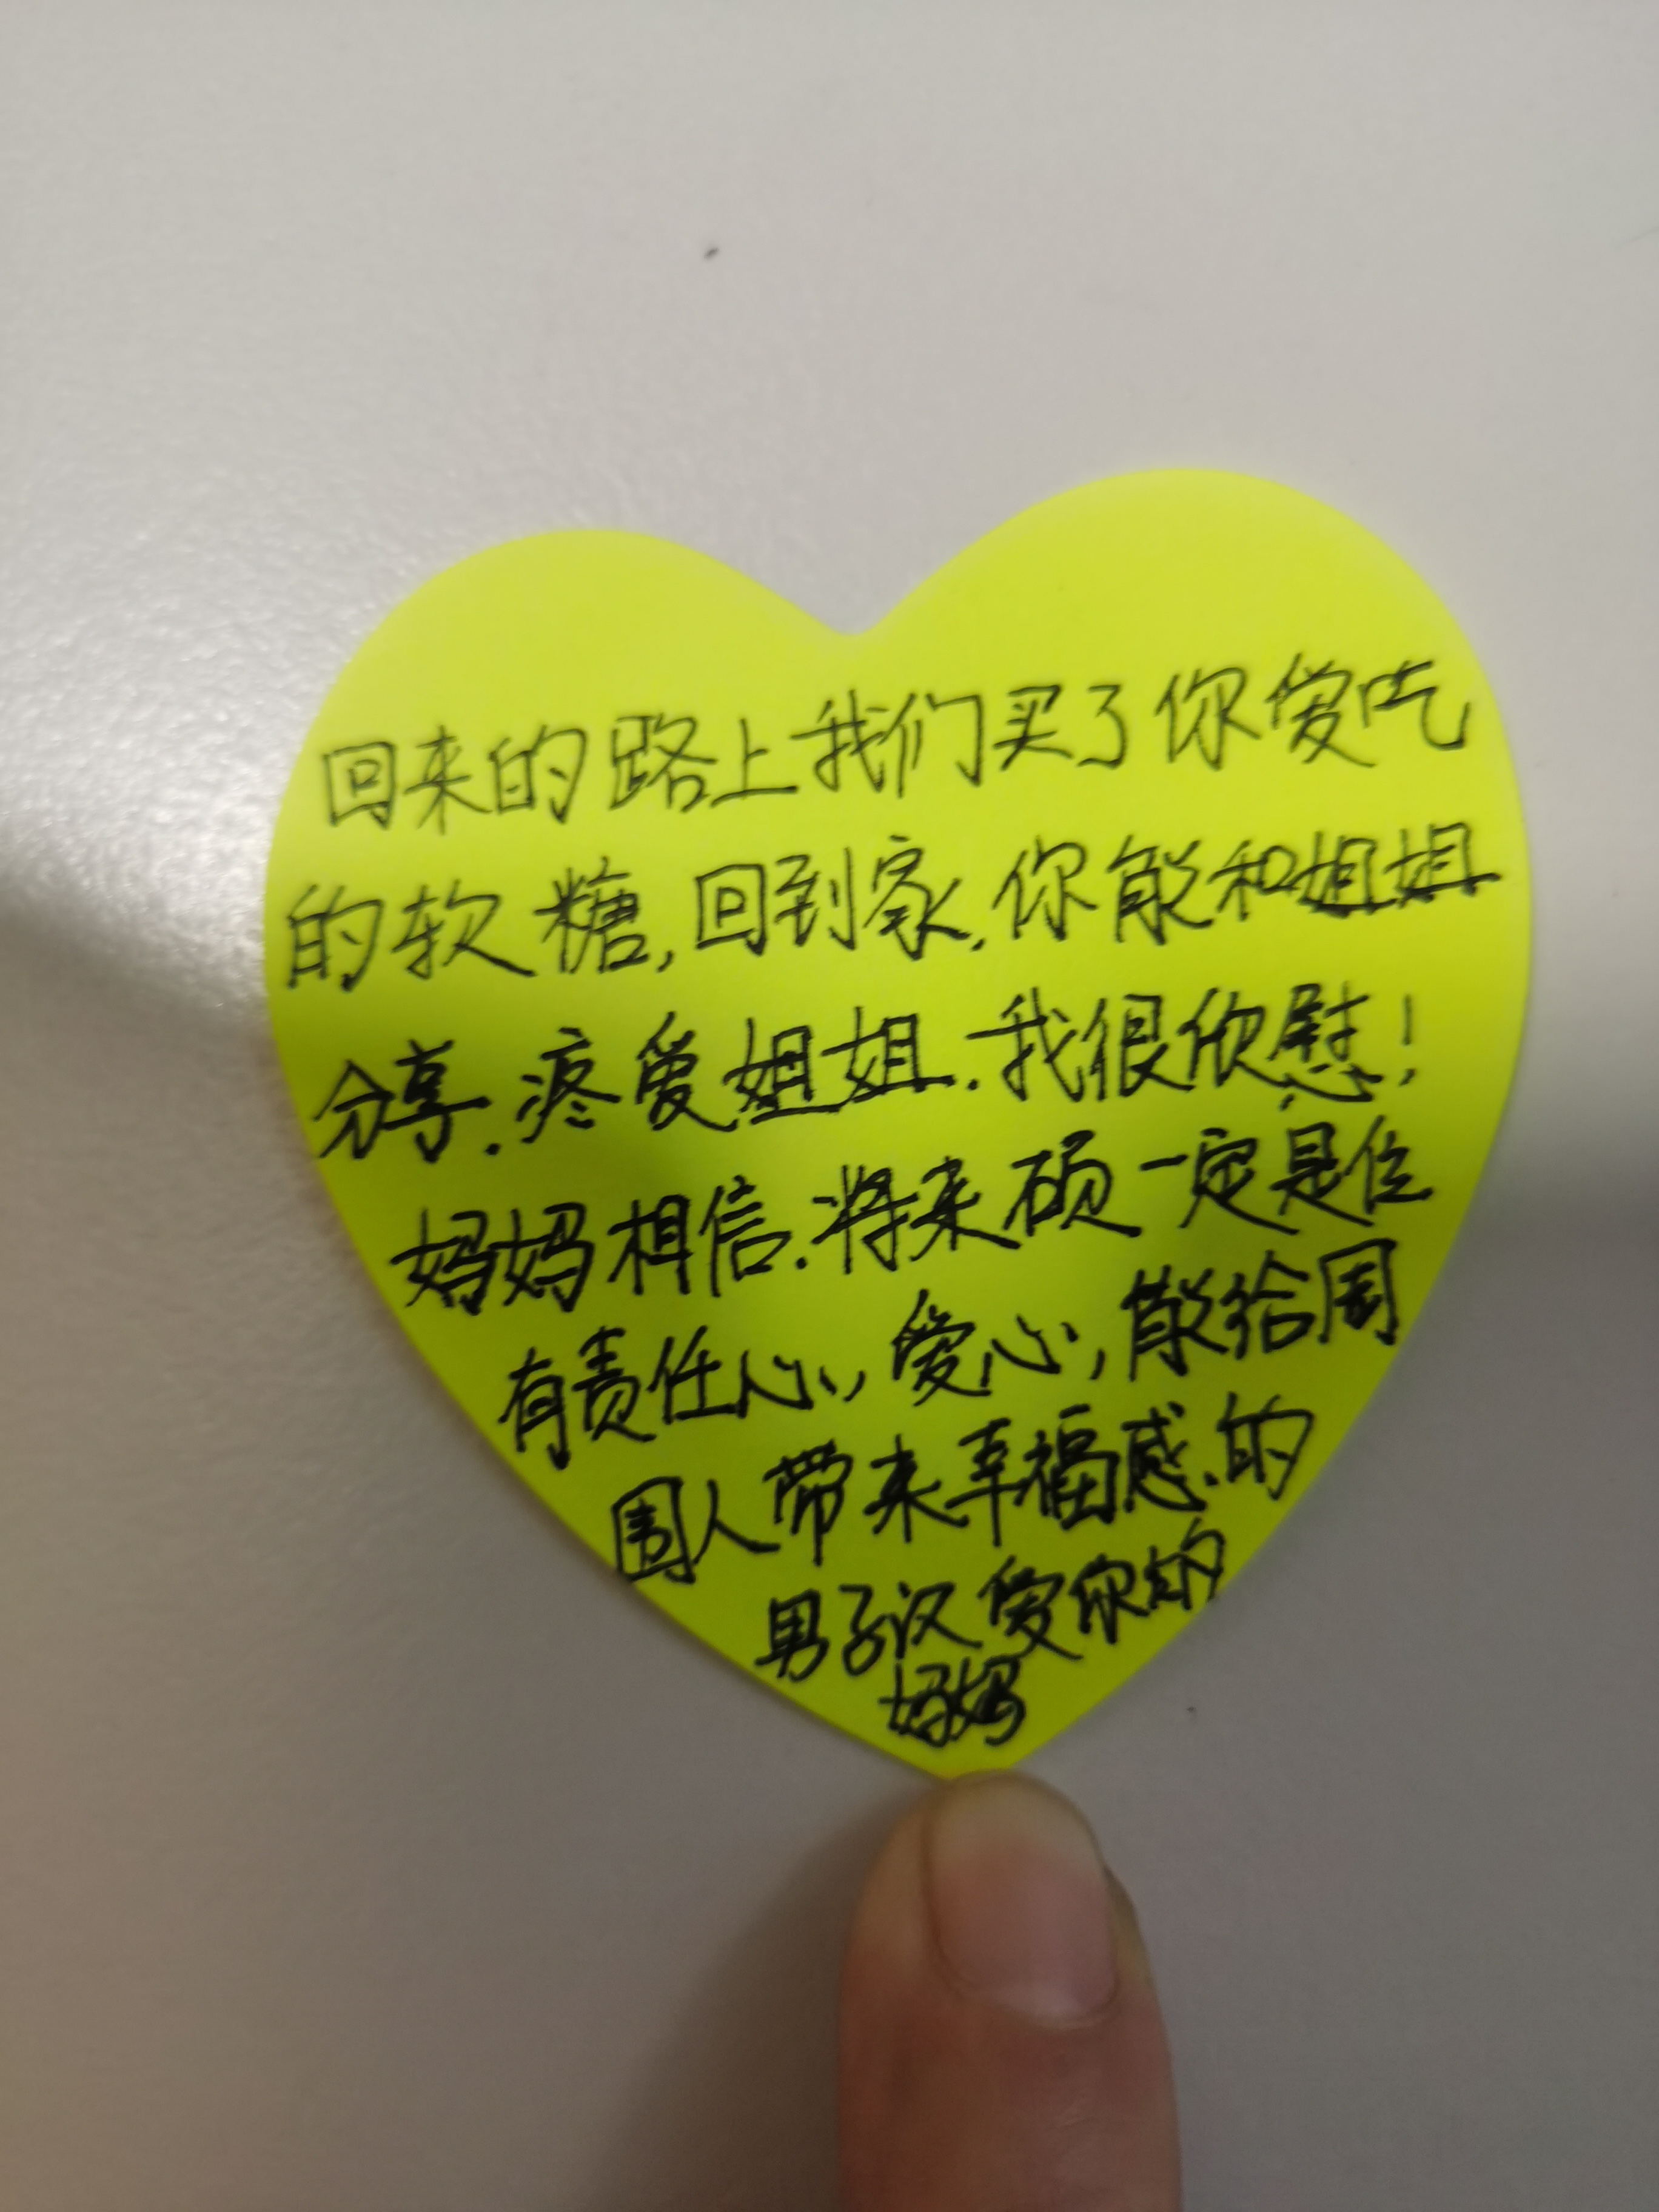 回来的路上我们买了你爱吃
的软糖,回到家,你能和姐姐
分享.疼爱姐姐.我很欣慰!
妈妈相信.将来硕一定是位
有责任心,爱心,能给周
围人带来幸福感.的
男子汉爱你的
妈妈